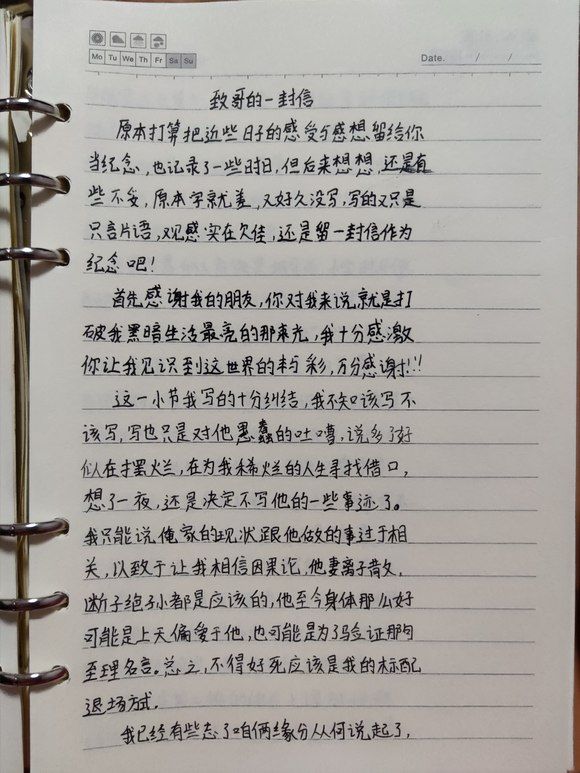 Mo Tu We Th Fr Sa Su
Date. / /
致哥的一封信
原本打算把近些日子的感受与感想留给你
当纪念,也记录了一些时日,但后来想想,还是有
些不妥,原本字就差,又好久没写,写的又只是
只言片语,观感实在欠佳,还是留一封信作为
纪念吧!
首先感谢我的朋友,你对我来说就是打
破我黑暗生活最亮的那束光,我十分感激
你让我见识到这世界的精彩,万分感谢!!!
这一小节我写的十分纠结,我不知该写不
该写,写也只是对他愚蠢的吐嘈,说多了好
似在摆烂,在为我稀烂的人生寻找借口,
想了一夜,还是决定不写他的一些事迹了。
我只能说俺家的现状跟他做的事过于相
关,以致于让我相信因果论,他妻离子散,
断子绝孙都是应该的,他至今身体那么好
可能是上天偏爱于他,也可能是为了验证那句
至理名言。总之,不得好死应该是我的标配
退场方式.
我已经有些忘了咱俩缘分从何说起了,